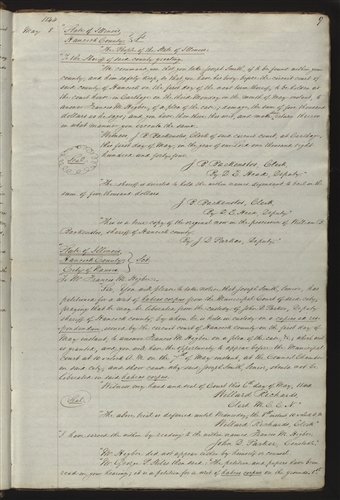 1844
9
May 8
"State of Illinois,
Hancock County, } Sct.
"The People of the State of Illinois,
"To the Sheriff of said county greeting.
"We command you that you take Joseph Smith, if to be found within your
county, and him safely keep, so that you have his body before the circuit court of
said county of Hancock on the first day of the next term thereof, to be holden at
the court house in Carthage on the third Monday in the month of May instant, to
answer Francis M. Higbee, of a plea of the case; damage the sum of five thousand
dollars as he says; and you have then there this writ, and make return thereon
in what manner you execute the same.
"Witness J. B. Backenstos Clerk of said circuit court, at Carthage,
this first day of May, in the year of our Lord one thousand eight
hundred and forty-four.
Seal
J. B. Backenstos, Clerk
By D. E. Head, Deputy."
"The sheriff is directed to hold the within named defendant to bail in the
sum of five thousand dollars.
J. B. Backenstos, Clerk
By D. E. Head, Deputy"
"This is a true copy of the original now in the possession of William B.
Backenstos, sheriff of Hancock county.
By J. D. Parker, Deputy"
"State of Illinois,
Hancock County, } Sct.
City of Nauvoo.
To Mr. Francis M. Higbee:
"Sir, You will please to take notice that Joseph Smith, Senior, has
petitioned for a writ of habeas corpus from the Municipal Court of said city,
praying that he may be liberated from the custody of John D. Parker, Deputy
sheriff of Hancock county, by whom he is held in custody on a capias ad res-
pondendum, issued by the circuit court of Hancock county on the first day of
May instant, to answer Francis M. Higbee on a plea of the case, &c; which writ
is granted, and you will have the opportunity to appear before the Municipal
Court at o'clock M. on the 7th of May instant, at the Council Chamber
in said city, and show cause why said Joseph Smith, Senior, should not be
liberated on said habeas corpus.
"Witness my hand and seal of Court this 6th day of May, 1844
Seal
Willard Richards,
Clerk M. C. C. N."
"The above trial is deferred until Wednesday, the 8th instant
Willard Richards, Clerk"
"I have served the within by reading to the within named Francis M. Higbee.
John D. Parker, Constable."
"Mr. Higbee did not appear either by himself or council.
"Mr. George P. Stiles then said; "The petition and papers have been
read in your hearing; it is a petition for a writ of habeas corpus on the grounds, 1st